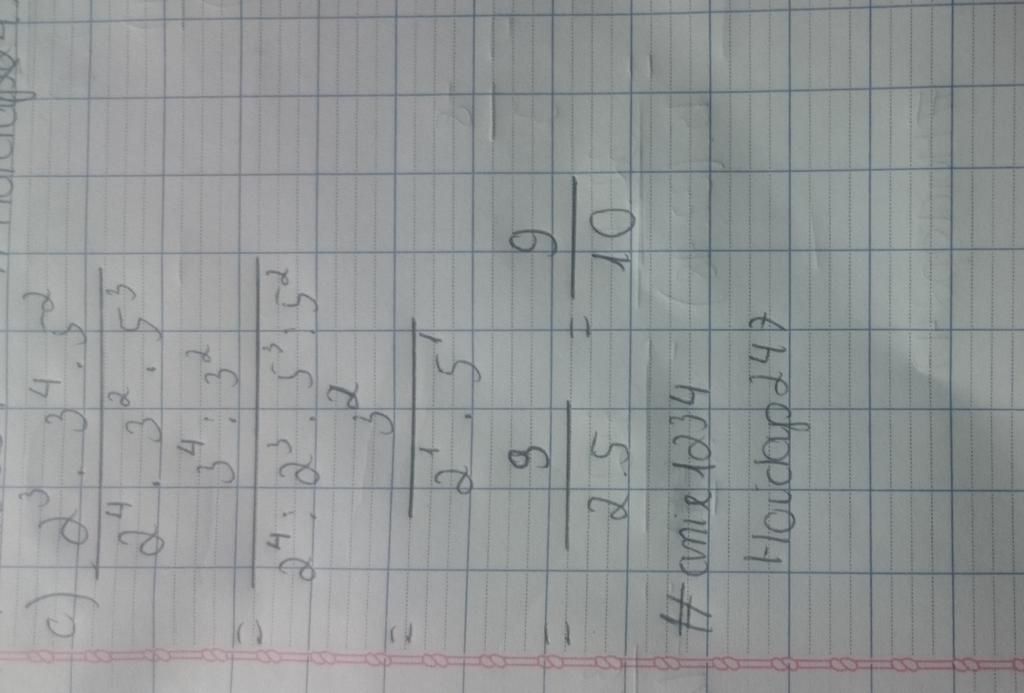 c) 2³ . 3⁴ . 5²
2⁴ . 3² . 5³
= 3⁴ : 3²
2⁴ : 2³ . 5³ : 5²
= 3²
2¹ . 5¹
= 9 = 9
2.5 10
#amie1234
Hoidap247